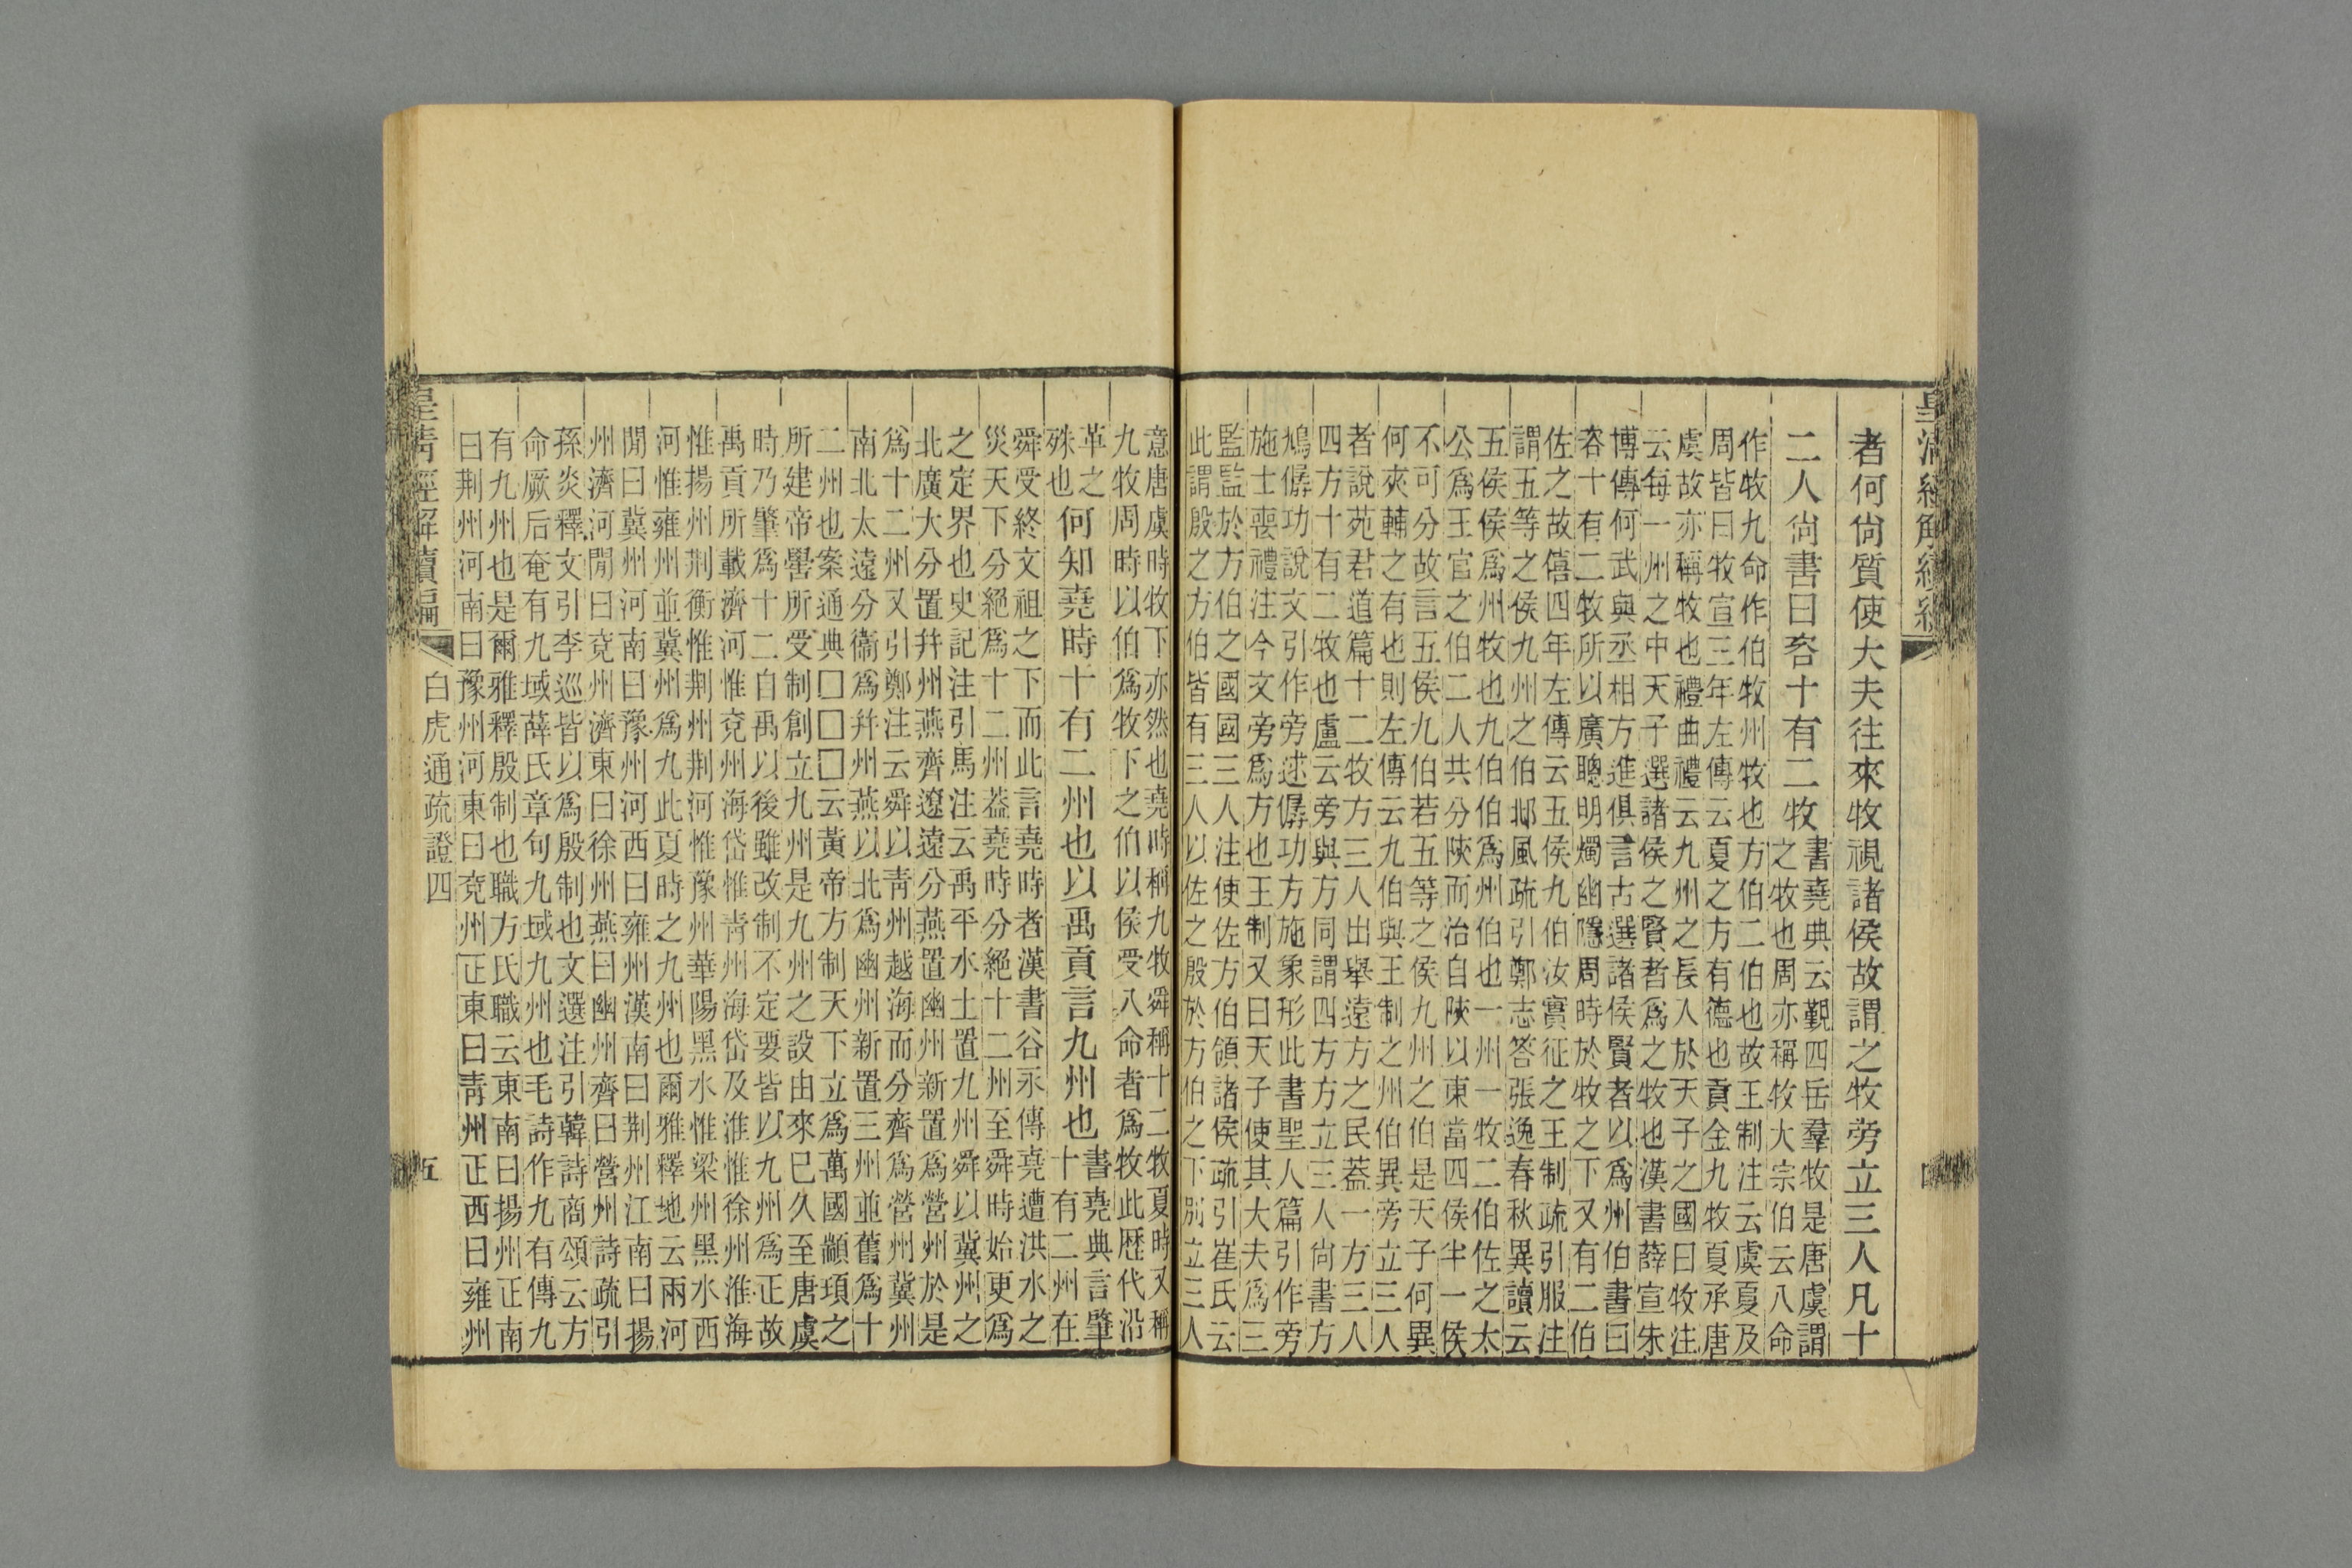 皇清經解續編
者何尙質使大夫往來牧視諸侯故謂之牧旁立三人凡十
二人尙書曰咨十有二牧
書堯典云覲四岳羣牧是唐虞謂
之牧也周亦稱牧大宗伯云八命
作牧九命作伯牧州牧也方伯二伯也故王制注云虞夏及
周皆曰牧宣三年左傳云夏之方有德也貢金九牧夏承唐
虞故亦稱牧也禮曲禮云九州之長入於天子之國曰牧注
云每一州之中天子選諸侯之賢者爲之牧也漢書薛宣朱
博傳何武與丞相方進俱言古選諸侯賢者以爲州伯書曰
咨十有二牧所以廣聰明燭幽隱周時於牧之下又有二伯
佐之故僖四年左傳云五侯九伯汝實征之王制疏引服注
謂五等之侯九州之伯邶風疏引鄭志答張逸春秋異讀云
五侯侯爲州牧也九伯伯爲州伯也一州一牧二伯佐之太
公爲王官之伯二人共分陝而治自陝以東當四侯半一侯
不可分故言五侯九伯若五等之侯九州之伯是天子何異
何夾輔之有也則左傳云九伯與王制之州伯異旁立三人
者說苑君道篇十二牧方三人出舉遠方之民蓋一方三人
四方十有二牧也盧云旁與方同謂四方方立三人尙書方
鳩僝功說文引作旁逑僝功方施象形此書聖人篇引作旁
施士喪禮注今文旁爲方也王制又曰天子使其大夫爲三
監監於方伯之國國三人注使佐方伯領諸侯疏引崔氏云
此謂殷之方伯皆有三人以佐之殷於方伯之下別立三人
意唐虞時牧下亦然也堯時稱九牧舜稱十二牧夏時又稱
九牧周時以伯爲牧下之伯以侯受八命者爲牧此歷代沿
革之
殊也
何知堯時十有二州也以禹貢言九州也
書堯典言肇
十有二州在
舜受終文祖之下而此言堯時者漢書谷永傳堯遭洪水之
災天下分絕爲十二州蓋堯時分絕十二州至舜時始更爲
之定界也史記注引馬注云禹平水土置九州舜以冀州之
北廣大分置幷州燕齊遼遠分燕置幽州新置爲營州於是
爲十二州又引鄭注云舜以靑州越海而分齊爲營州冀州
南北太遠分衞爲幷州燕以北爲幽州新置三州並舊爲十
二州也案通典□□□云黃帝方制天下立爲萬國顓頊之
所建帝嚳所受制創立九州是九州之設由來巳久至唐虞
時乃肇爲十二自禹以後雖改制不定要皆以九州爲正故
禹貢所載濟河惟兗州海岱惟靑州海岱及淮惟徐州淮海
惟揚州荆衡惟荆州荆河惟豫州華陽黑水惟梁州黑水西
河惟雍州並冀州爲九此夏時之九州也爾雅釋地云兩河
閒曰冀州河南曰豫州河西曰雍州漢南曰荆州江南曰揚
州濟河閒曰兗州濟東曰徐州燕曰幽州齊曰營州詩疏引
孫炎釋文引李巡皆以爲殷制也文選注引韓詩商頌云方
命厥后奄有九域薛氏章句九域九州也毛詩作九有傳九
有九州也是爾雅釋殷制也職方氏職云東南曰揚州正南
曰荆州河南曰豫州河東曰兗州正東曰靑州正西曰雍州
皇淸經解續編 白虎通疏證四 五